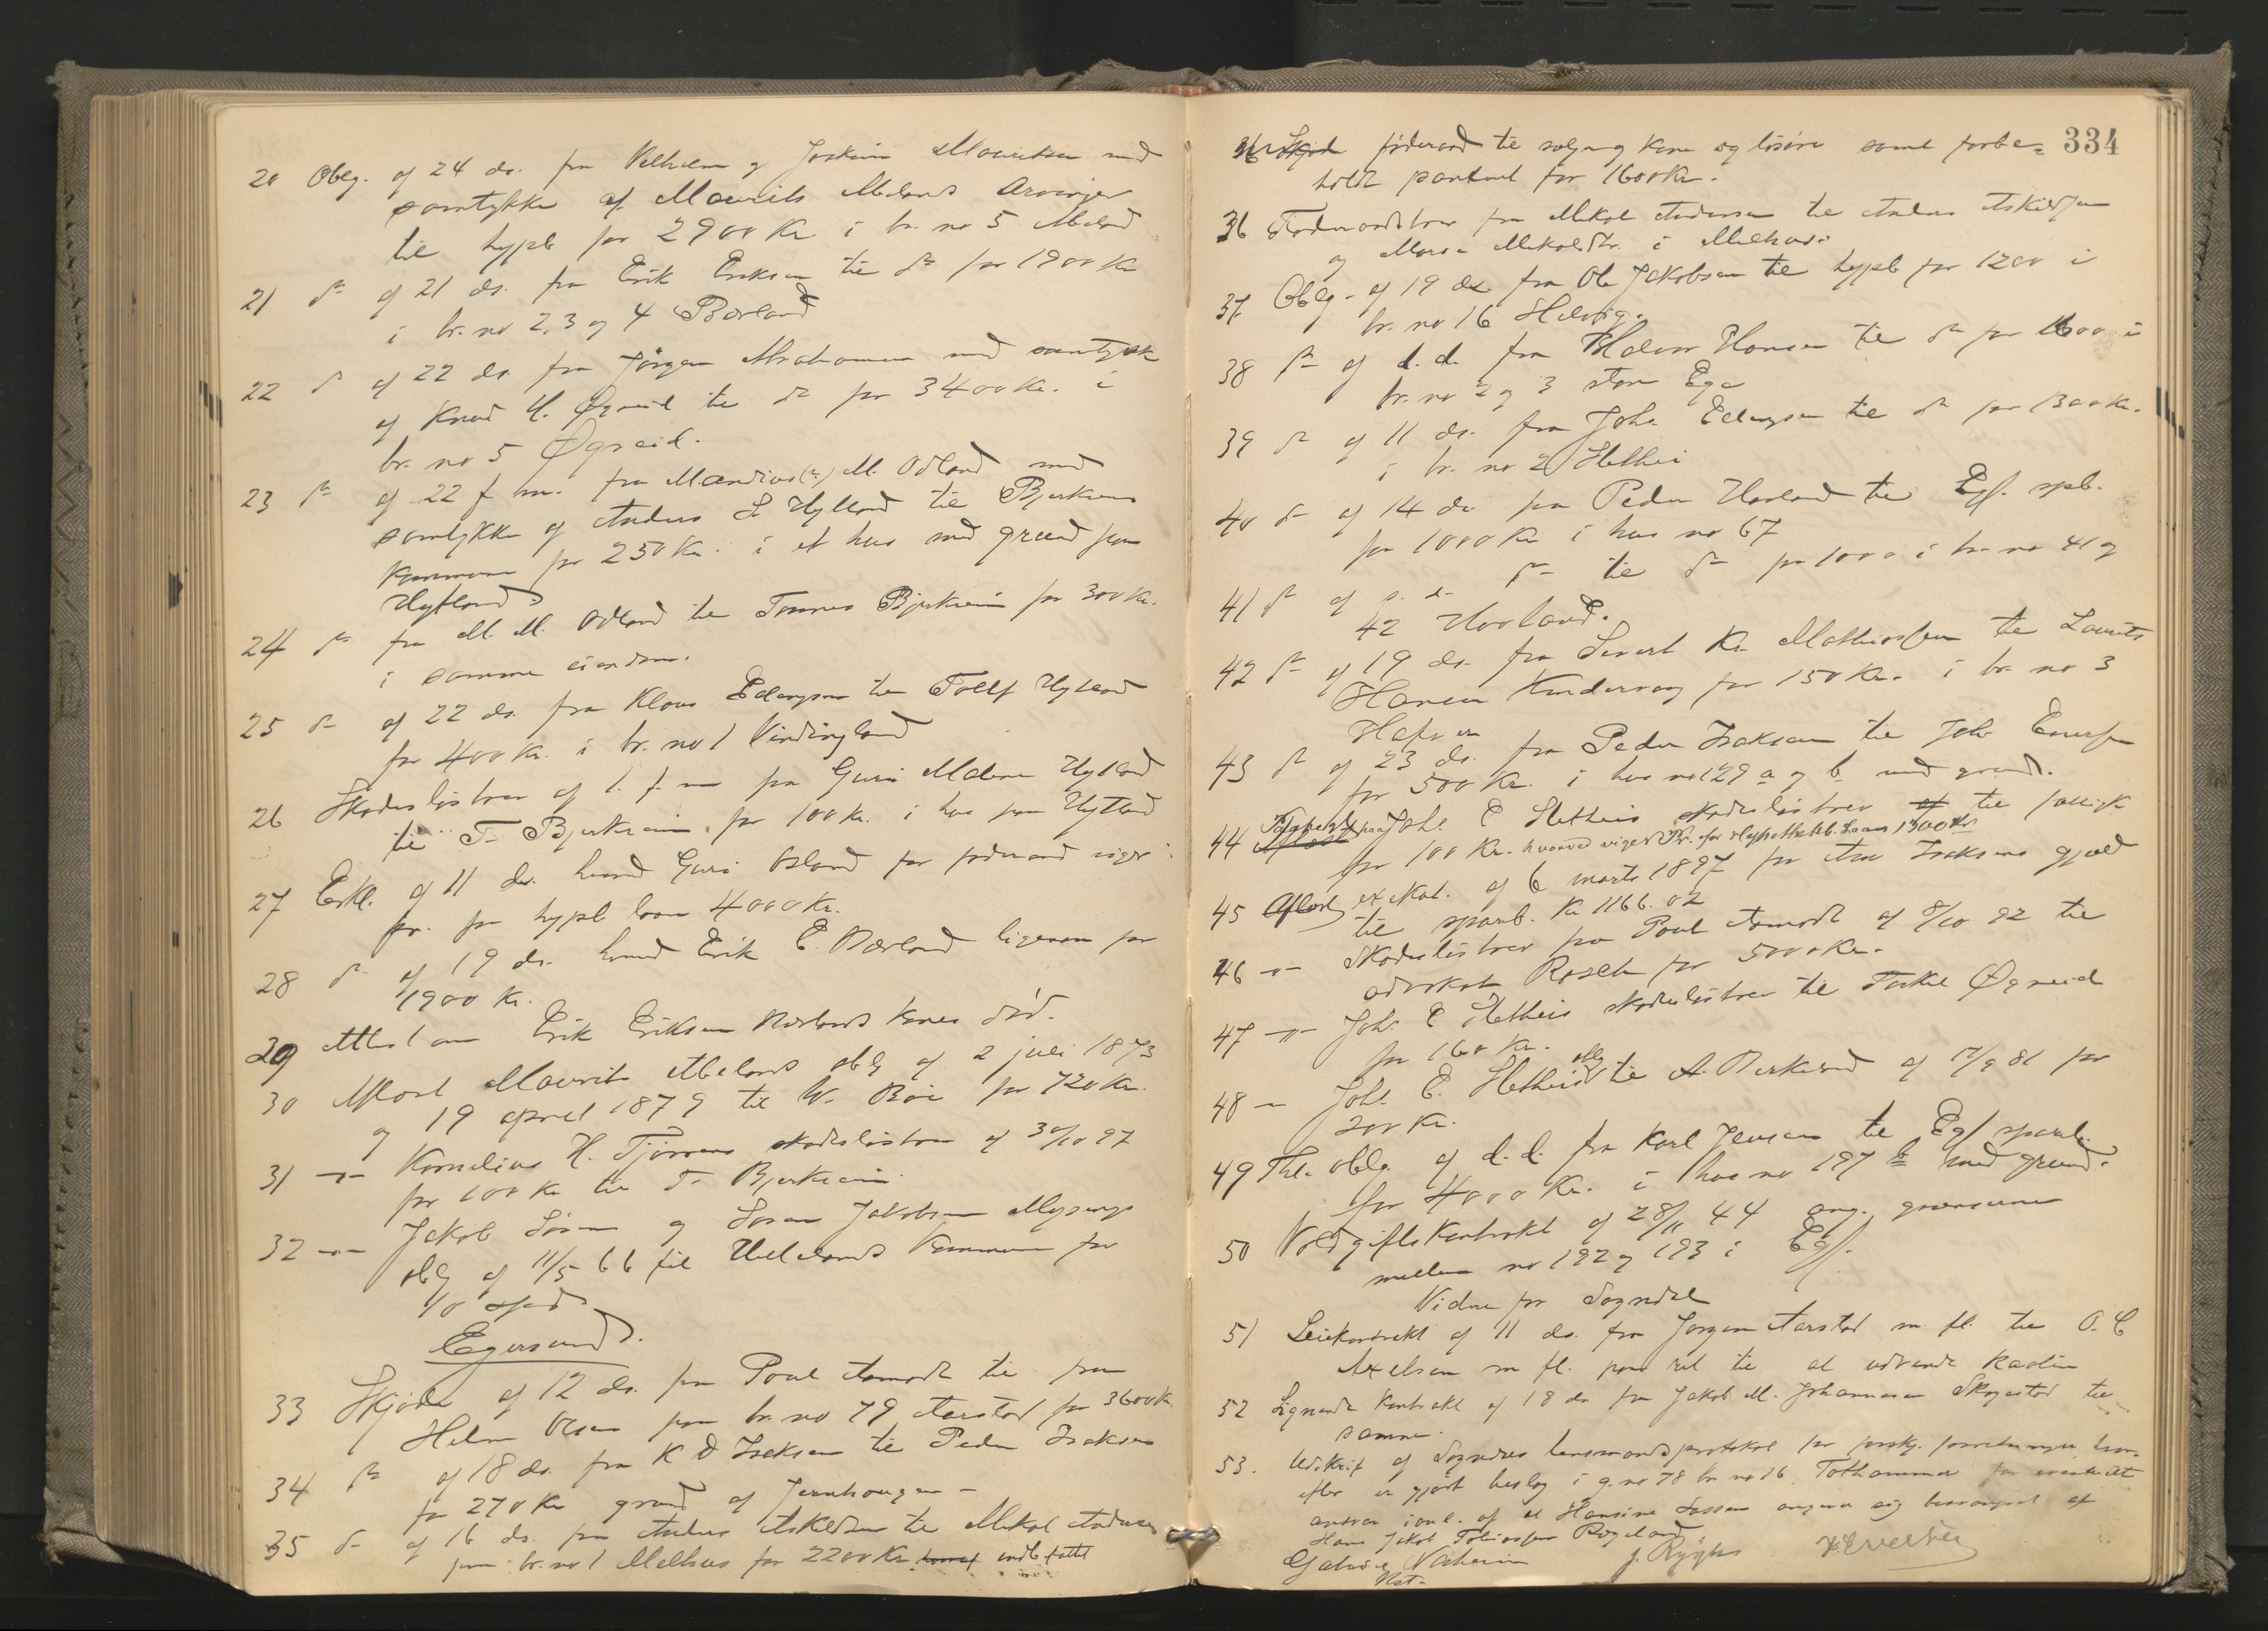 20 Oblg. af 24 ds. fra Vilhelm og Joakim Mauritsen med
samtykke af Maurits Mælands Arvinger
til hypb for 2900 Kr i br. no 5 Mæland
21 do af 21 ds. fra Erik Eriksen til do for 1900 Kr
i br. no 2, 3 og 4 Bærland
22 do af 22 ds. fra Jörgen Abrahamsen med samtykke
af Knud H. Øgreid til do for 3400 Kr. i
br. no 5 Øgreid.
23 do af 22 f. m. fra Mandius(?) M. Odland med
samtykke af Anders S. Hytland til Bjerkreim
kommune for 250 Kr. i et hus med grund paa
Hytland
24 do fra M. M. Odland til Tönnes Bjerkreim for 300 Kr.
i samme eiendom.
25 do af 22 ds. fra Klaus Edvardsen til Tollef Hytland
for 400 Kr. i br. no 1 Virdingland
26 Skadeslösbrev af 1. f. m fra Guri Malene Hytland
til T. Bjerkreim for 100 Kr. i hus paa Hytland
27 Erkl. af 11 ds. hvorved Guri Osland for föderaad viger
pr. for hypb laan 4000 Kr.
28 do af 19 ds. hvorved Erik E. Bærland ligesom for
1900 Kr.
29 Attest om Erik Eriksen Bærlands kones död.
30 Aflæst Maurits Mælands oblg af 2 juli 1873
og 19 april 1879 til W. Böe for 720 Kr.
31 -"- Kornelius H. Tjörns skadeslösbrev af 30/10 97
for 100 Kr til T. Bjerkreim
32 -"- Jakob Sören og Sören Jakobsen Mysinge
oblg af 11/5 66 til Hellelands kommune for
40 spd
Egersund.
33 Skjöde af 12 ds. fra Poul Aamodt til fru
Helene Olsen paa br. no 79 Aarstad for 3600 Kr.
34 do af 18 ds. fra K D Isaksen til Peder Isaksen
for 270 Kr grund af Jernhaugen -
35 do af 16 ds. fra Anders Askildsen til Mikal Andersen
paa br. no 1 Mælhus for 2200 Kr. indbefattet
334
föderaad til sælger og kone og lösöre samt forbe=
holdt panteret for 1600 Kr.
36 Föderaadsbrev fra Mikal Andersen til Anders Askildsen
og Maria Mikalsdtr. i Mælhus.
37 Oblg. af 19 ds fra Ole Jakobsen til hypb for 1200 i
br. no 16 Helvig.
38 do af d. d. fra Halvor Hansen til do for 1600 i
br. no 2 og 3 store Ege
39 do af 11 ds. fra Johs Edvardsen til do for 1300 Kr.
i br. no 2 Hetthei
40 do af 14 ds fra Peder Havland til Egs. spb.
for 1000 Kr i hus no 67
41 do af s. d. do til do for 1000 i br. no 41 og
42 Hovland.
42 do af 19 ds. fra Sivert Kr. Mathiassen til Laurits
Hansen Kindervaag for 150 Kr. i br. no 3
Hafsøe
43 do af 23 ds. fra Peder Isaksen til Johs Eiversen
for 500 Kr. i hus no 129 a og b med grund.
44 paa Johs. E Hetheis skadeslösbrev til
for 100 Kr. hvorved viges Pr. for Hypothekb. Laan 1300 Kr
45 Aflæst exekut. af 6 marts 1897 for Isaksens gjæld
til sparb. Kr 1166.02
46 -"- Skadeslösbrev fra Poul Aamodt af 8/10 92 til
advokat Rosch for 5000 Kr.
47 -"- Johs E Hetheis skadeslösbrev til Torkel Øgreid
for 160 Kr.
48 - Johs. E. Hetheis oblg til A. Birkeland af 17/9 81 for
200 Kr.
49 Thl. oblg. af d.d. fra Karl Jensen til Egs sparb.
for 4000 Kr. i hus no 197 b med grund.
50 Voldgiftskontrakt af 28/11 44 ang. grænserne
mellem no 192 og 193 i Egs.
Videre for Sogndal
51 Leiekontrakt af 11 ds. fra Jörgen Aarstad m. fl. til O. C
Axelsen m fl. paa ret til at udvinde kaolin
52 Lignende kontrakt af 18 ds fra Jakob M. Johannesen Skogestad til
samme.
53. Udskrift af Sogndals lensmandsprotokol for forskj. forretninger hvor=
efter er gjort beslag i g. no 78 br no 16 Tothammer for eventuelt
ansvar ianl. af at Hansine Larsen angiver sig besvangret af
Hans Jakob Tobiassen Rægeland
Gabriel Vaheim J. Rygh